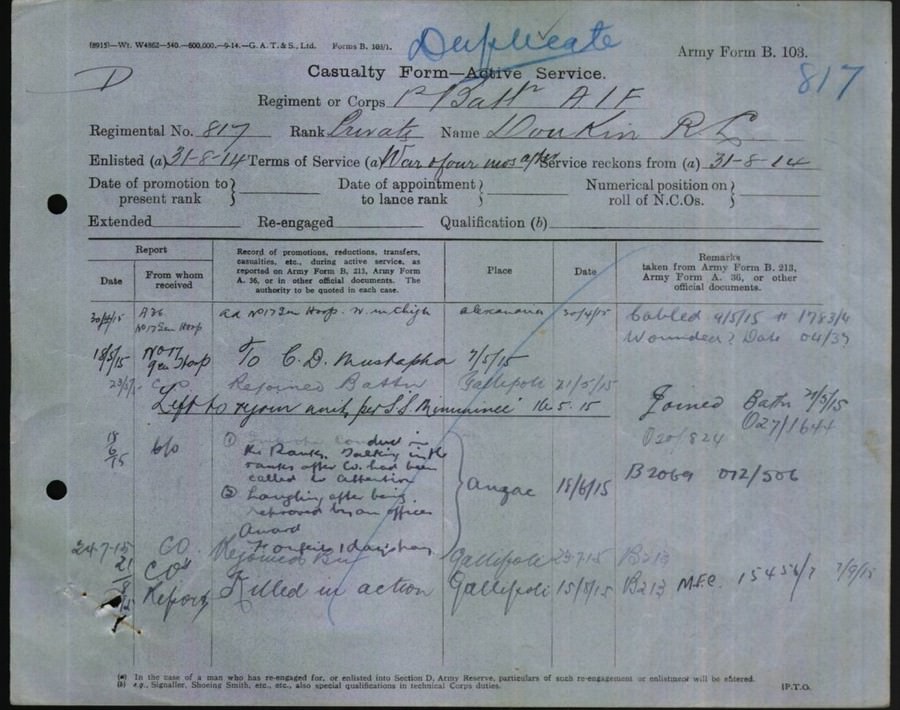 (8915)—Wt. W4862—540.—600,000.—9-14.—G. A. T. & S., Ltd. Forms B. 103/1.
Duplicate
Army Form B. 103.
D
817
Casualty Form—Active Service.
Regiment or Corps Batt AIF
Regimental No. 817 Rank Private Name Donkin R L
Enlisted (a) 31-8-14 Terms of Service (a) War & four mos after Service reckons from (a) 31-8-14
Date of promotion to present rank } Date of appointment to lance rank } Numerical position on roll of N.C.Os. }
Extended Re-engaged Qualification (b)
Report
Date
From whom received
Record of promotions, reductions, transfers, casualties, etc., during active service, as reported on Army Form B. 213, Army Form A. 36, or in other official documents. The authority to be quoted in each case.
Place
Date
Remarks taken from Army Form B. 213, Army Form A. 36, or other official documents.
30/4/15 A36 No 17 Gen Hosp ad No 17 Gen Hosp. alexandria 30/4/15 Cabled 9/5/15
Wounded ? Date
18/5/15 Gen Hosp To C. D. Mustapha 7/5/15
C.O. Rejoined Battn Gallipoli 21/5/15 Joined Battn 21/5/15
Left to rejoin unit, per S.S. 16.5.15 027/1644
020/824
18/6/15 C/O (1) conduct in
the Ranks. Talking in the
ranks after Co. had been
called to Attention
(2) Laughing after being
reproved by an officer
Award
Forfeits 1 days pay
Anzac 18/6/15 B2069 012/506
24-7-15 CO. Rejoined Bn Gallipoli B213
21/8/15 CO's Report Killed in action Gallipoli 15/8/15 B213
(a) In the case of a man who has re-engaged for, or enlisted into Section D, Army Reserve, particulars of such re-engagement or enlistment will be entered.
(b) e.g., Signaller, Shoeing Smith, etc., etc., also special qualifications in technical Corps duties.
[P.T.O.